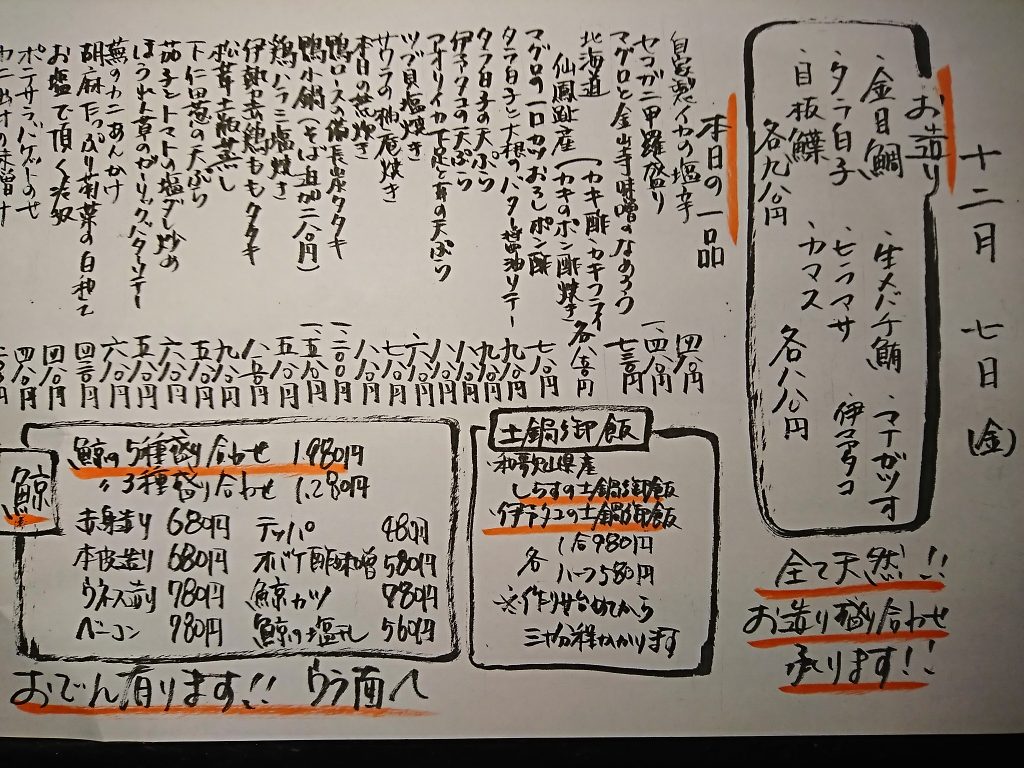 十二月 七日 (金)
お造り
金目鯛 生メバチ鮪 マナガツオ
タラ白子 ヒラマサ 伊予タコ
目板鰈 カマス
各九八〇円 各八八〇円
全て天然!!
お造り盛り合わせ
承ります!!
本日の一品
自家製イカの塩辛 四八〇円
セコガニ甲羅盛り 一、四八〇円
マグロと金山寺味噌のなめろう 七三〇円
北海道
仙鳳趾産 (カキ酢・カキフライ
(カキのポン酢焼き 各八三〇円
マグロの一口カツおろしポン酢 七八〇円
タラ白子と大根のバター醤油ソテー 九八〇円
タラ白子の天ぷら 九八〇円
伊予タコの天ぷら 八八〇円
アオリイカ下足と耳の天ぷら 六八〇円
ツブ貝塩焼き
サワラの柚庵焼き 七八〇円
本日の煮炊き 八八〇円
鴨ロースの備長炭タタキ 一、二〇〇円
鴨小鍋(そば追加二八〇円) 一、五八〇円
鶏ハラミ塩焼き 五八〇円
伊勢赤鶏ももタタキ 八八〇円
松茸土瓶蒸し 九八〇円
下仁田葱の天ぷら 五八〇円
茄子とトマトの塩ダレ炒め 六八〇円
ほうれん草のガーリックバターソテー 五八〇円
蕪のカニあんかけ 六八〇円
胡麻たっぷり菊菜の白和え 四三〇円
お塩で頂く冷奴 四八〇円
土鍋御飯
和歌山県産
しらすの土鍋御飯
伊予タコの土鍋御飯
各 1合980円
ハーフ580円
※作り始めてから
三十分程かかります
鯨
鯨の5種盛り合わせ 1,980円
〃 3種盛り合わせ 1,280円
赤身造り 680円 テッパ 480円
本皮造り 680円 オバケ酢味噌 580円
ウネス造り 780円 鯨カツ 780円
ベーコン 780円 鯨の塩タレ 560円
おでん有ります!! ウラ面へ